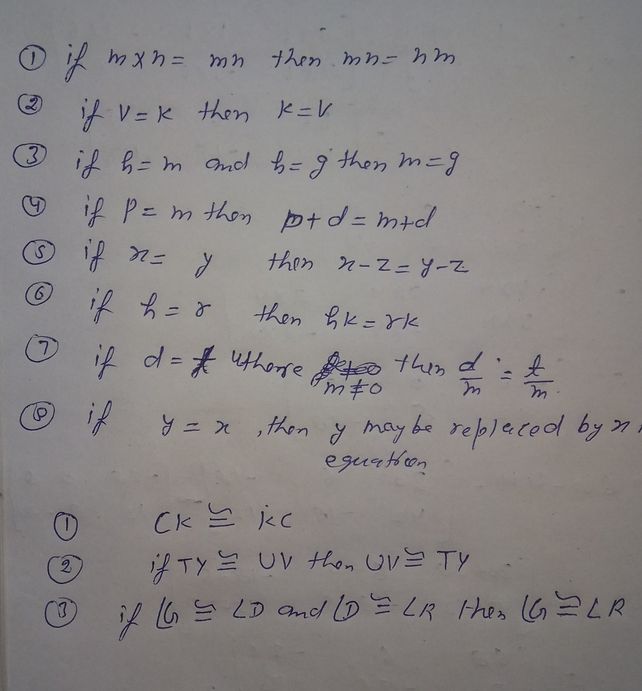 ① if m×n = mn then mn = nm
② if V = K then K = V
③ if h = m and h = g then m = g
④ if P = m then p + d = m + d
⑤ if x = y then x - z = y - z
⑥ if h = r then hk = rk
⑦ if d = t where m ≠ 0 then d/m = t/m.
⑧ if y = x, then y may be replaced by x
equation
① CK ≅ KC
② if TY ≅ UV then UV ≅ TY
③ if ∠G ≅ ∠D and ∠D ≅ ∠R then ∠G ≅ ∠R